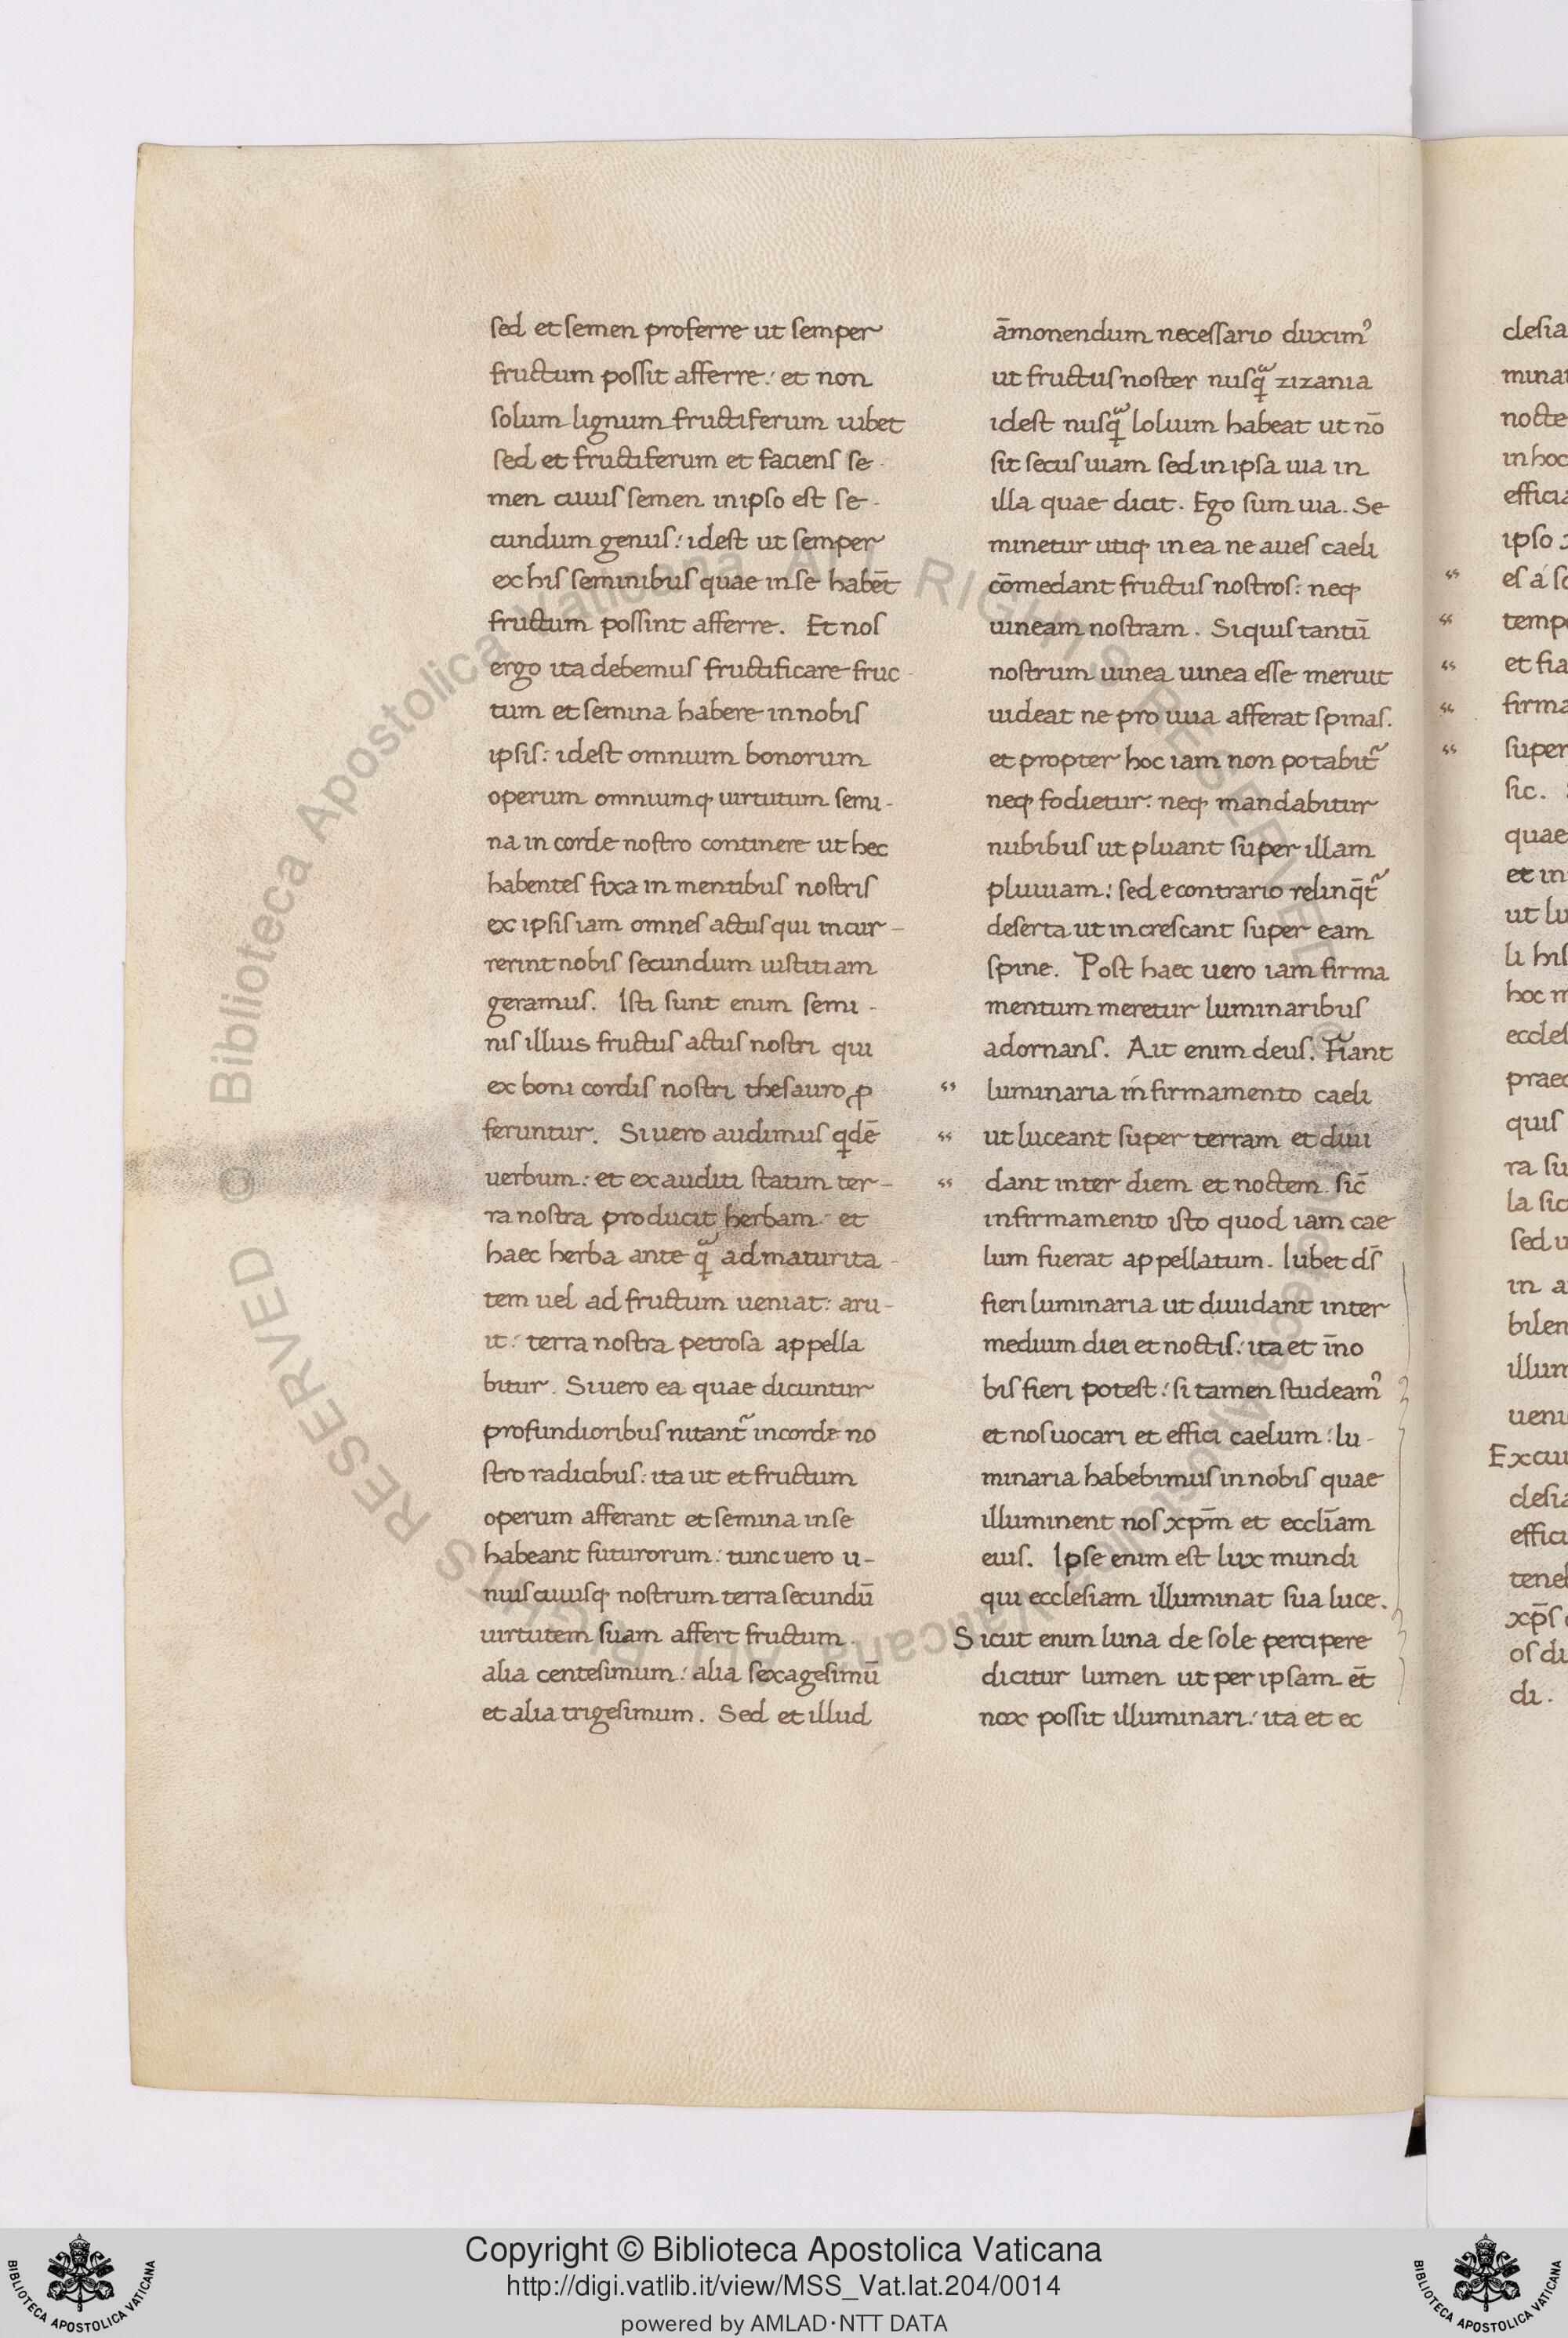 sed et semen proferre ut semper
fructum possit afferre: et non
solum lignum fructiferum iubet
sed et fructiferum et faciens se-
men cuius semen in ipso est se-
cundum genus: idest ut semper
ex his seminibus quae in se habēt
fructum possint afferre. Et nos
ergo ita debemus fructificare fruc-
tum et semina habere in nobis
ipsis: idest omnium bonorum
operum omniumq; uirtutum semi-
na in corde nostro continere ut hec
habentes fixa in mentibus nostris
ex ipsis iam omnes actus qui incur-
rerint nobis secundum iustitiam
geramus. Isti sunt enim semi-
nis illius fructus actus nostri qui
ex boni cordis nostri thesauro ꝓ
feruntur. Si uero audimus qdē
uerbum: et ex auditi statim ter-
ra nostra producit herbam: et
haec herba ante q̃ ad maturita-
tem uel ad fructum ueniat: aru-
it: terra nostra petrosa appella
bitur. Si uero ea quae dicuntur
profundioribus nitant᷑ in corde no
stro radicibus: ita ut et fructum
operum afferant et semina in se
habeant futurorum: tunc uero u-
nuscuiusq; nostrum terra secundū
uirtutem suam affert fructum.
alia centesimum: alia sexagesimū
et alia trigesimum. Sed et illud
āmonendum necessario duximꝰ
ut fructus noster nusq̃ zizania
idest nusq̃ lolium habeat ut nō
sit secus uiam sed in ipsa uia in
illa quae dicit. Ego sum uia. Se
minetur utiq; in ea ne aues caeli
cōmedant fructus nostros: neq;
uineam nostram. Si quis tantū
nostrum uinea uinea esse meruit
uideat ne pro uua afferat spinas.
et propter hoc iam non potabit᷑
neq; fodietur: neq; mandabitur
nubibus ut pluant super illam
pluuiam: sed e contrario relinq̄t᷑
deserta ut increscant super eam
spine. Post haec uero iam firma
mentum meretur luminaribus
adornans. Ait enim deus. Fiant
luminaria in firmamento caeli
ut luceant super terram et diui
dant inter diem et noctem. sic̄
in firmamento isto quod iam cae
lum fuerat appellatum. Iubet ds̄
fieri luminaria ut diuidant inter
medium diei et noctis: ita et īno
bis fieri potest: si tamen studeamꝰ
et nos uocari et effici caelum: lu-
minaria habebimus in nobis quae
illuminent nos xpm̄ et eccl̄iam
eius. Ipse enim est lux mundi
qui ecclesiam illuminat sua luce.
Sicut enim luna de sole percipere
dicitur lumen ut per ipsam et̄
nox possit illuminari: ita et ec
clesia
minat
nocte
in hoc
efficia
ipso
es á so
temp
et fia
firma
super
sic.
quae
et in
ut lu
li his
hoc m
eccles
praec
quis
ra su
la sic
sed u
in a
bilem
illum
ueni
Ex cui
clesia
effici
teneb
xp̄s
os du
di.
Biblioteca Apostolica Vaticana ALL RIGHTS RESERVED ©
Copyright © Biblioteca Apostolica Vaticana
http://digi.vatlib.it/view/MSS_Vat.lat.204/0014
powered by AMLAD·NTT DATA
BIBLIOTECA APOSTOLICA VATICANA
BIBLIOTECA APOSTOLICA VATICANA